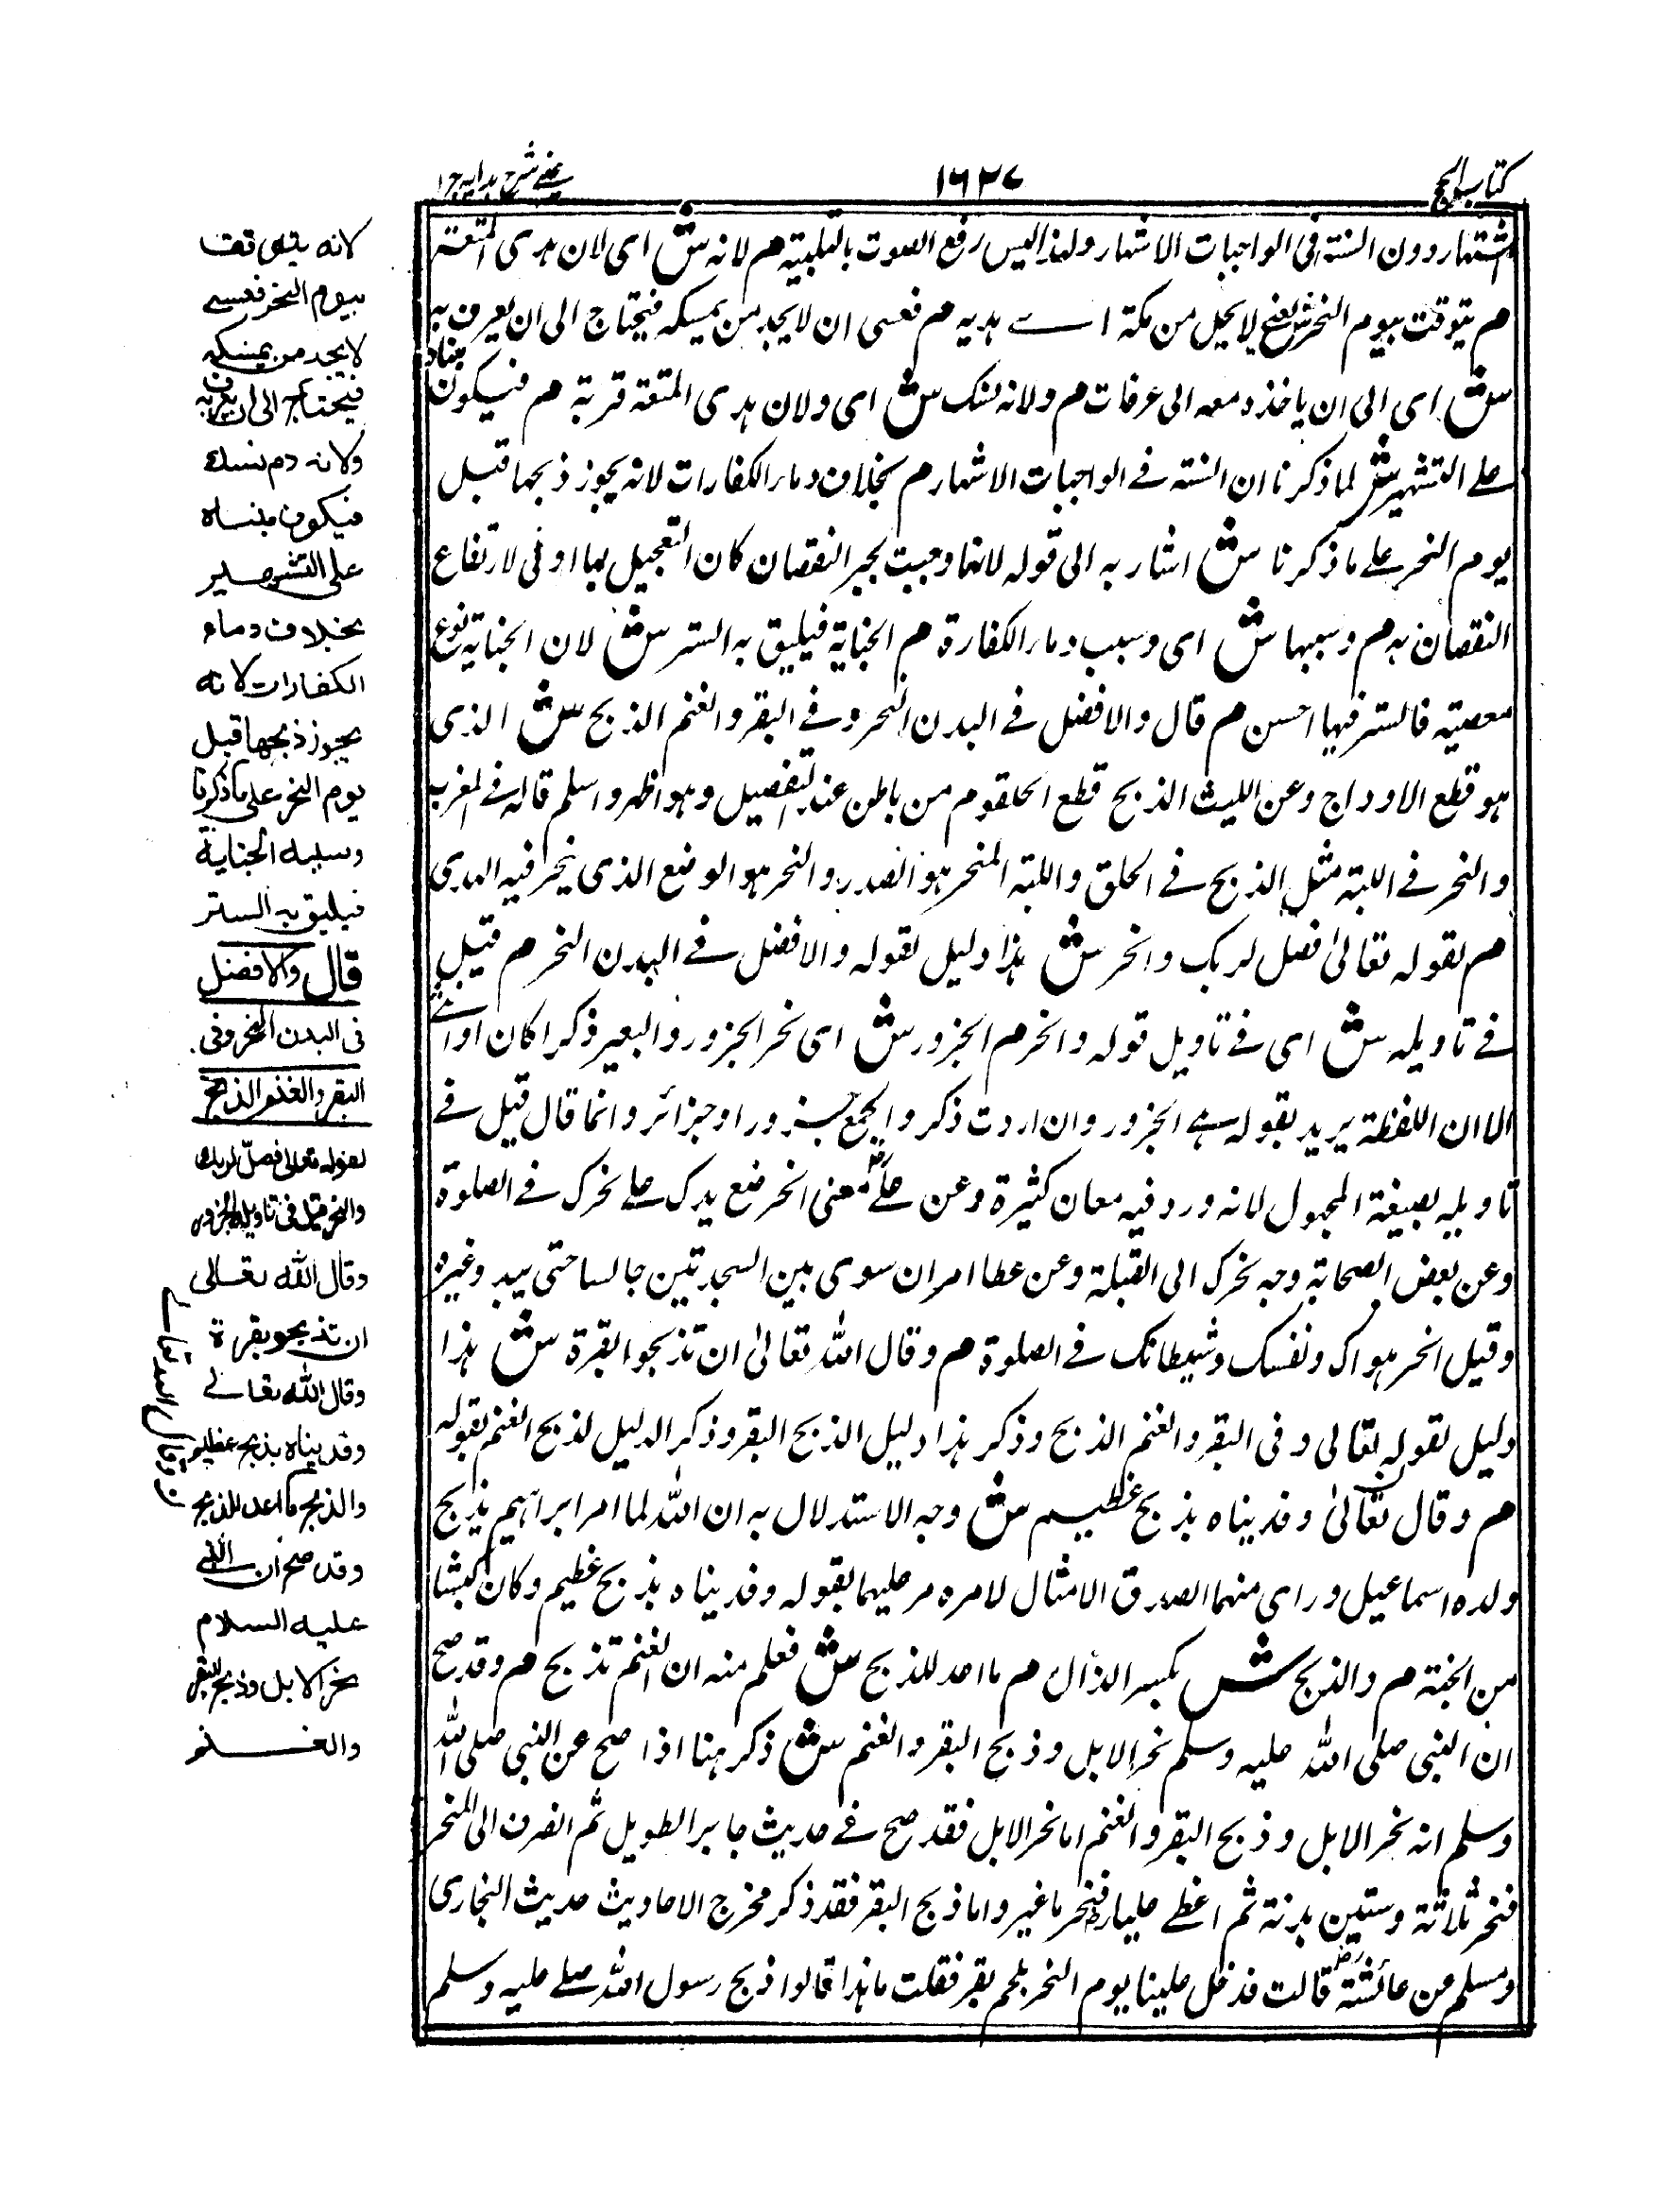 كتاب الحج
١٦٢٧
عيني شرح هدايه ج ١
اشتهار دون السنة في الواجبات الاشهار ولهذا ليس رفع الصوت بالتلبية م لانه ش اى لان هدى المتعة
م يتوقت بيوم النحر ش يعنى لا يحل من مكة اے هديه م فعسى ان لا يجد من يمسكه فيحتاج الى ان يعرف به
ش اى الى ان ياخذه معه الى عرفات م ولانه نسك ش اى ولان هدى المتعة قربة م فيكون مبناه
على التشهير ش لما ذكرنا ان السنة فے الواجبات الاشهار م بخلاف دماء الكفارات لانه يجوز ذبحها قبل
يوم النحر على ما ذكرنا ش اشار به الى قوله لانها وجبت لجبر النقصان كان التعجيل بها اوفى لارتفاع
النقصان به م وسببها ش اى وسبب دماء الكفارة م الجناية فيليق به الستر ش لان الجناية نوع
معصية فالستر فيها احسن م قال والافضل فے البدن النحر وفے البقر والغنم الذبح ش الذى
هو قطع الاوداج وعن الليث الذبح قطع الحلقوم من باطن عند التفصيل وهو اظهر واسلم قاله فے المغرب
والنحر فے اللبة مثل الذبح فے الحلق واللبة المنحر هو الصدر والنحر هو الوضع الذى ينحر فيه الهدى
م لقوله تعالىٰ فصل لربك وانحر ش هذا دليل لقوله والافضل فے البدن النحر م قيل
فے تاويله ش اى فے تاويل قوله وانحر م الجزور ش اى نحر الجزور والبعير ذكرا كان او انثے
الا ان اللفظة يريد بقوله هے الجزور وان اردت ذكر والجمع جزورا وجزائر وانما قال قيل فے
تاويله بصيغة المجهول لانه ورد فيه معان كثيرة وعن علے رض معنى انحر ضع يدك على نحرك فے الصلوة
وعن بعض الصحابة وجه نحرك الى القبلة وعن عطا امر ان سوى بين السجدتين جالسا حتى يبد وغيره
وقيل انحر هواك ونفسك وشيطانك فے الصلوة م وقال الله تعالىٰ ان تذبحوا بقرة ش هذا
دليل لقوله تعالى وفى البقر والغنم الذبح وذكر هذا دليل الذبح البقر وذكر الدليل لذبح الغنم بقوله
م وقال تعالىٰ وفديناه بذبح عظيم ش وجه الاستدلال به ان الله لما امر ابراهيم بذبح
ولده اسماعيل وراى منهما الصدق الامثال لامره من عليهما بقوله وفديناه بذبح عظيم وكان كبشا
من الجنة م والذبح ش بكسر الذال م ما اعد للذبح ش فعلم منه ان الغنم تذبح م وقد صح
ان النبى صلى الله عليه وسلم نحر الابل وذبح البقر والغنم ش ذكر هنا اذا صح عن النبى صلى الله
وسلم انه نحر الابل وذبح البقر والغنم اما نحر الابل فقد صح فے حديث جابر الطويل ثم انصرف الى المنحر
فنحر ثلاثة وستين بدنة ثم اعطے عليا رض فنحر ما غبر واما ذبح البقر فقد ذكر مخرج الاحاديث حديث البخارى
ومسلم عن عائشة رض قالت فدخل علينا يوم النحر بلحم بقر فقلت ما هذا قالوا ذبح رسول الله صلے عليه وسلم
لانه يتوقت
بيوم النحر فعسے
لا يجد من يمسكه
فيحتاج الى ان يعرف به
ولانه دم نسك
فيكون مبناه
على التشهير
بخلاف دماء
الكفارات لانه
يجوز ذبحها قبل
يوم النحر على ما ذكرنا
وسببه الجناية
فيليق به الستر
قال والافضل
فى البدن النحر وفى
البقر والغنم الذبح
لقوله تعالى فصل لربك
وانحر قيل فى تاويله الجزور
وقال الله تعالى
ان تذبحوا بقرة
وقال الله تعالے
وفديناه بذبح عظيم
والذبح ما اعد للذبح
وقد صح ان النبے
عليه السلام
نحر الابل وذبح البقر
والغنم
ن وقال الله تعالے